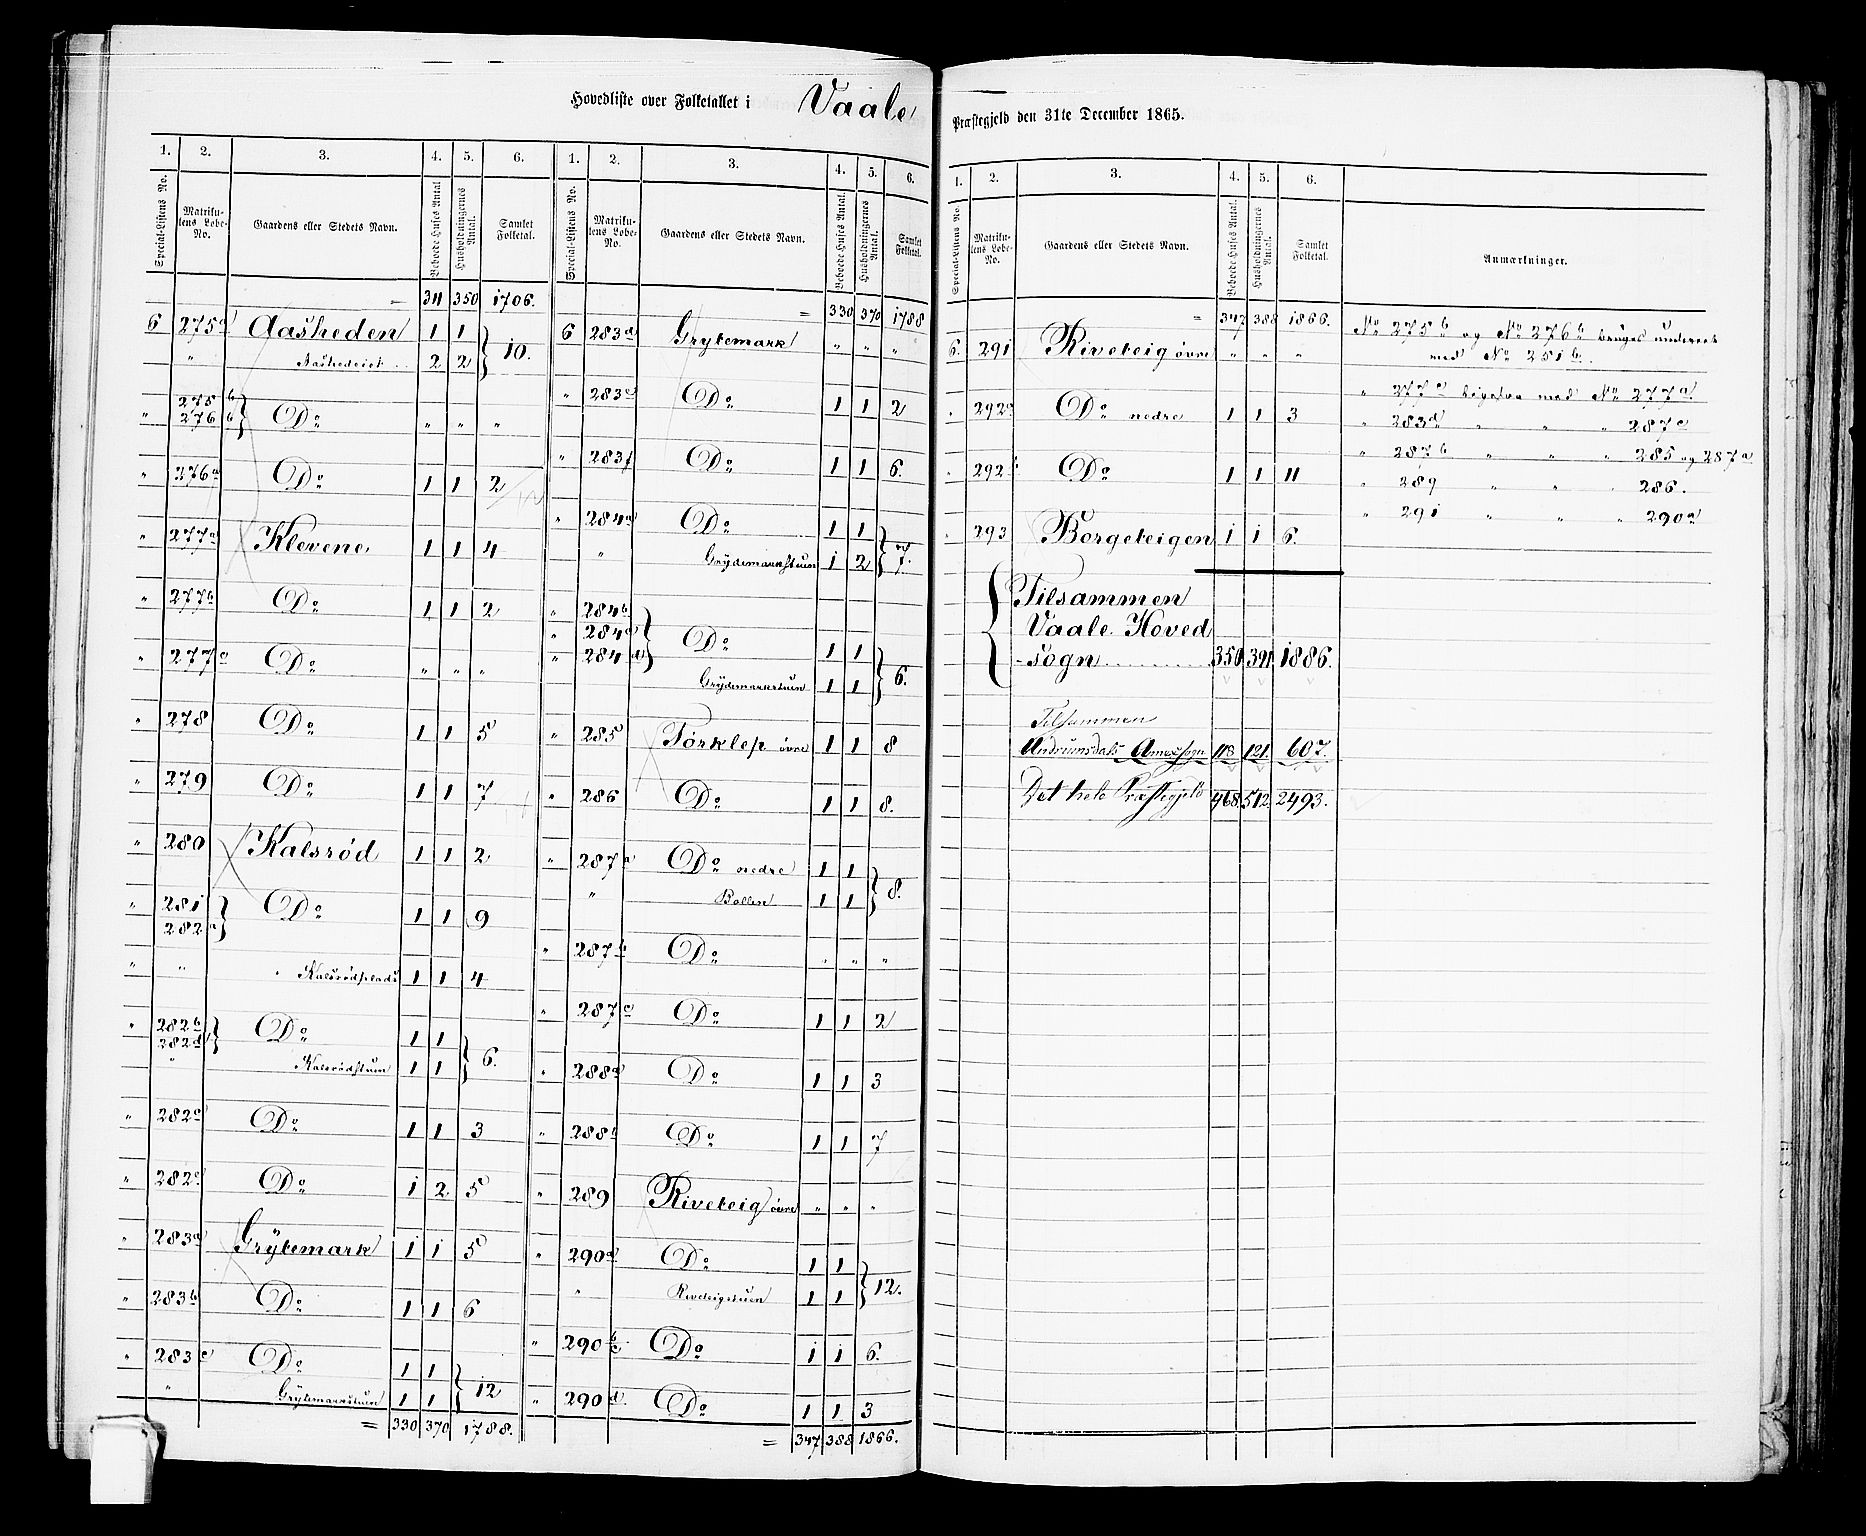 Hovedliste over Folketallet i Vaale
1. 2. 3. 4. 5. 6.
Special-Listens No. Matrikulens Løbe-No. Gaardens eller Stedets Navn. Beboede Huses Antal Husholdningernes Antal. Samlet Folketal.
= 311 350 1706.
6 275a Aasheden 1 1 } 10.
" Aashedeiet .. 2 2
" 275b 276b } Do " " "
" 276a Do 1 1 2
" 277a Klevene 1 1 4
" 277b Do 1 1 2
" 277c Do " " "
" 278 Do 1 1 5
" 279 Do 1 1 7
" 280 Kalsrød 1 1 2
" 281 282a } Do 1 1 9
" " " Kalsrødplads 1 1 4
" 282b 282d } Do 1 1 } 6.
" Kalsrødstuen 1 1
" 282c Do 1 1 3
" 282e Do 1 2 5
" 283a Grÿtemark 1 1 5
" 283b Do 1 1 6
" 283c Do 1 1 } 12
" Grÿtemarkstuen 1 1
= 330 370 1788.
1. 2. 3. 4. 5. 6.
Special-Listens No. Matrikulens Løbe-No. Gaardens eller Stedets Navn. Beboede Huses Antal. Husholdningernes Antal. Samlet Folketal.
= 330 370 1788
6 283d Grÿtemark " " "
" 283e Do 1 1 2
" 283f Do 1 1 6.
" 284a Do 1 1 } 7.
" Grÿdemarkstuen 1 2
" 284b
" 284c } Do 1 1 } 6.
" 284d
Grÿdemarkstuen 1 1
" 285 Førklep øvre 1 1 8
" 286 Do 1 1 8.
" 287a Do nedre 1 1 } 8.
" Bollen 1 1
" 287b Do " " "
" 287c Do 1 1 2
" 288a Do 1 1 3
" 288b Do 1 1 7
" 289 Riveteig øvre " " "
" 290a Do 1 1 } 12.
" Rivdeigstuen 1 1
" 290b c Do 1 1 6.
" 290d. Do 1 1 3
= 347 388 1866.
Præstegjeld den 31te December 1865.
1. 2. 3. 4. 5. 6.
Special-Listens No. Matrikulens Løbe-No. Gaardens eller Stedets Navn. Beboede Huses Antal. Husholdningernes Antal. Samlet Folketal. Anmærkninger.
= 347 388 1866.
6. 291 Riveteig øvre " " "
" 292a Do nedre 1 1 3
" 292b Do 1 1 11
" 293 Borgeteigen 1 1 6.
Tilsammen
Vaale Hoved
-sogn.......... 350 391 1886.
Tilsammen
Undrumsdals Annexsogn 118 121 607.
Det hele Præstegjeld 468 512 2493.
No 275b og No 276b bruges underet
med No 251b.
" 277c ligesaa med No 277a
" 283d " " " 287c
" 287b " " " 285 og 287a
" 289 " " " 286.
" 291 " " " 290a